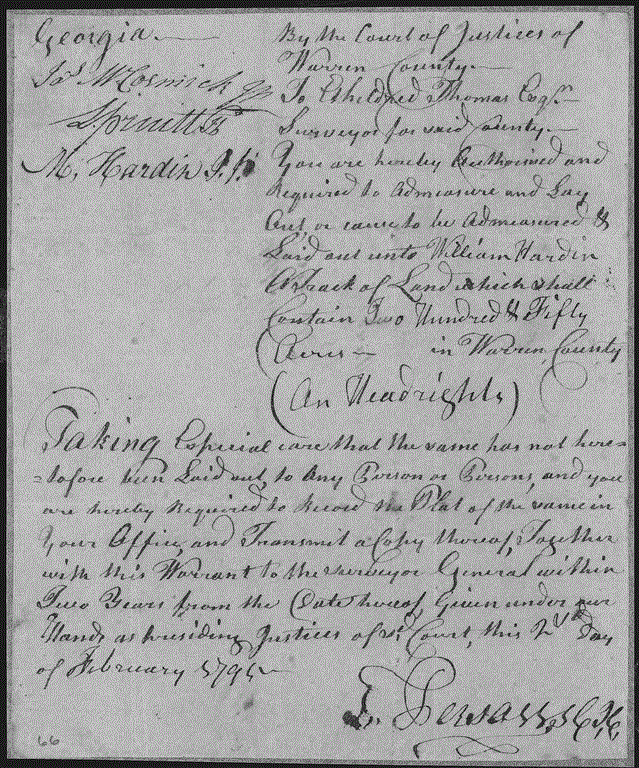 Georgia
Jas McCormick JP
Spruitt
M. Hardin J.P.
By the Court of Justices of
Warren County
To Etheldred Thomas Esqr.
Surveyor for said County
You are hereby Authorised and
Required to Admeasure and Lay
Out, or cause to be Admeasured &
Laid out unto William Hardin
A Track of Land which shall
Contain Two Hundred & Fifty
Acres in Warren County
(An Headrights)
Taking Especial care that the same has not here=
=tofore been Laid out, to Any Person or Persons, and you
are hereby Required to Record the Plat of the same in
Your Office, and Transmit a Copy thereof, Together
with this Warrant to the Surveyor General within
Two Years from the Date hereof, Given under our
Hands as Presiding Justices of sd. Court, this day
of February 1795
66